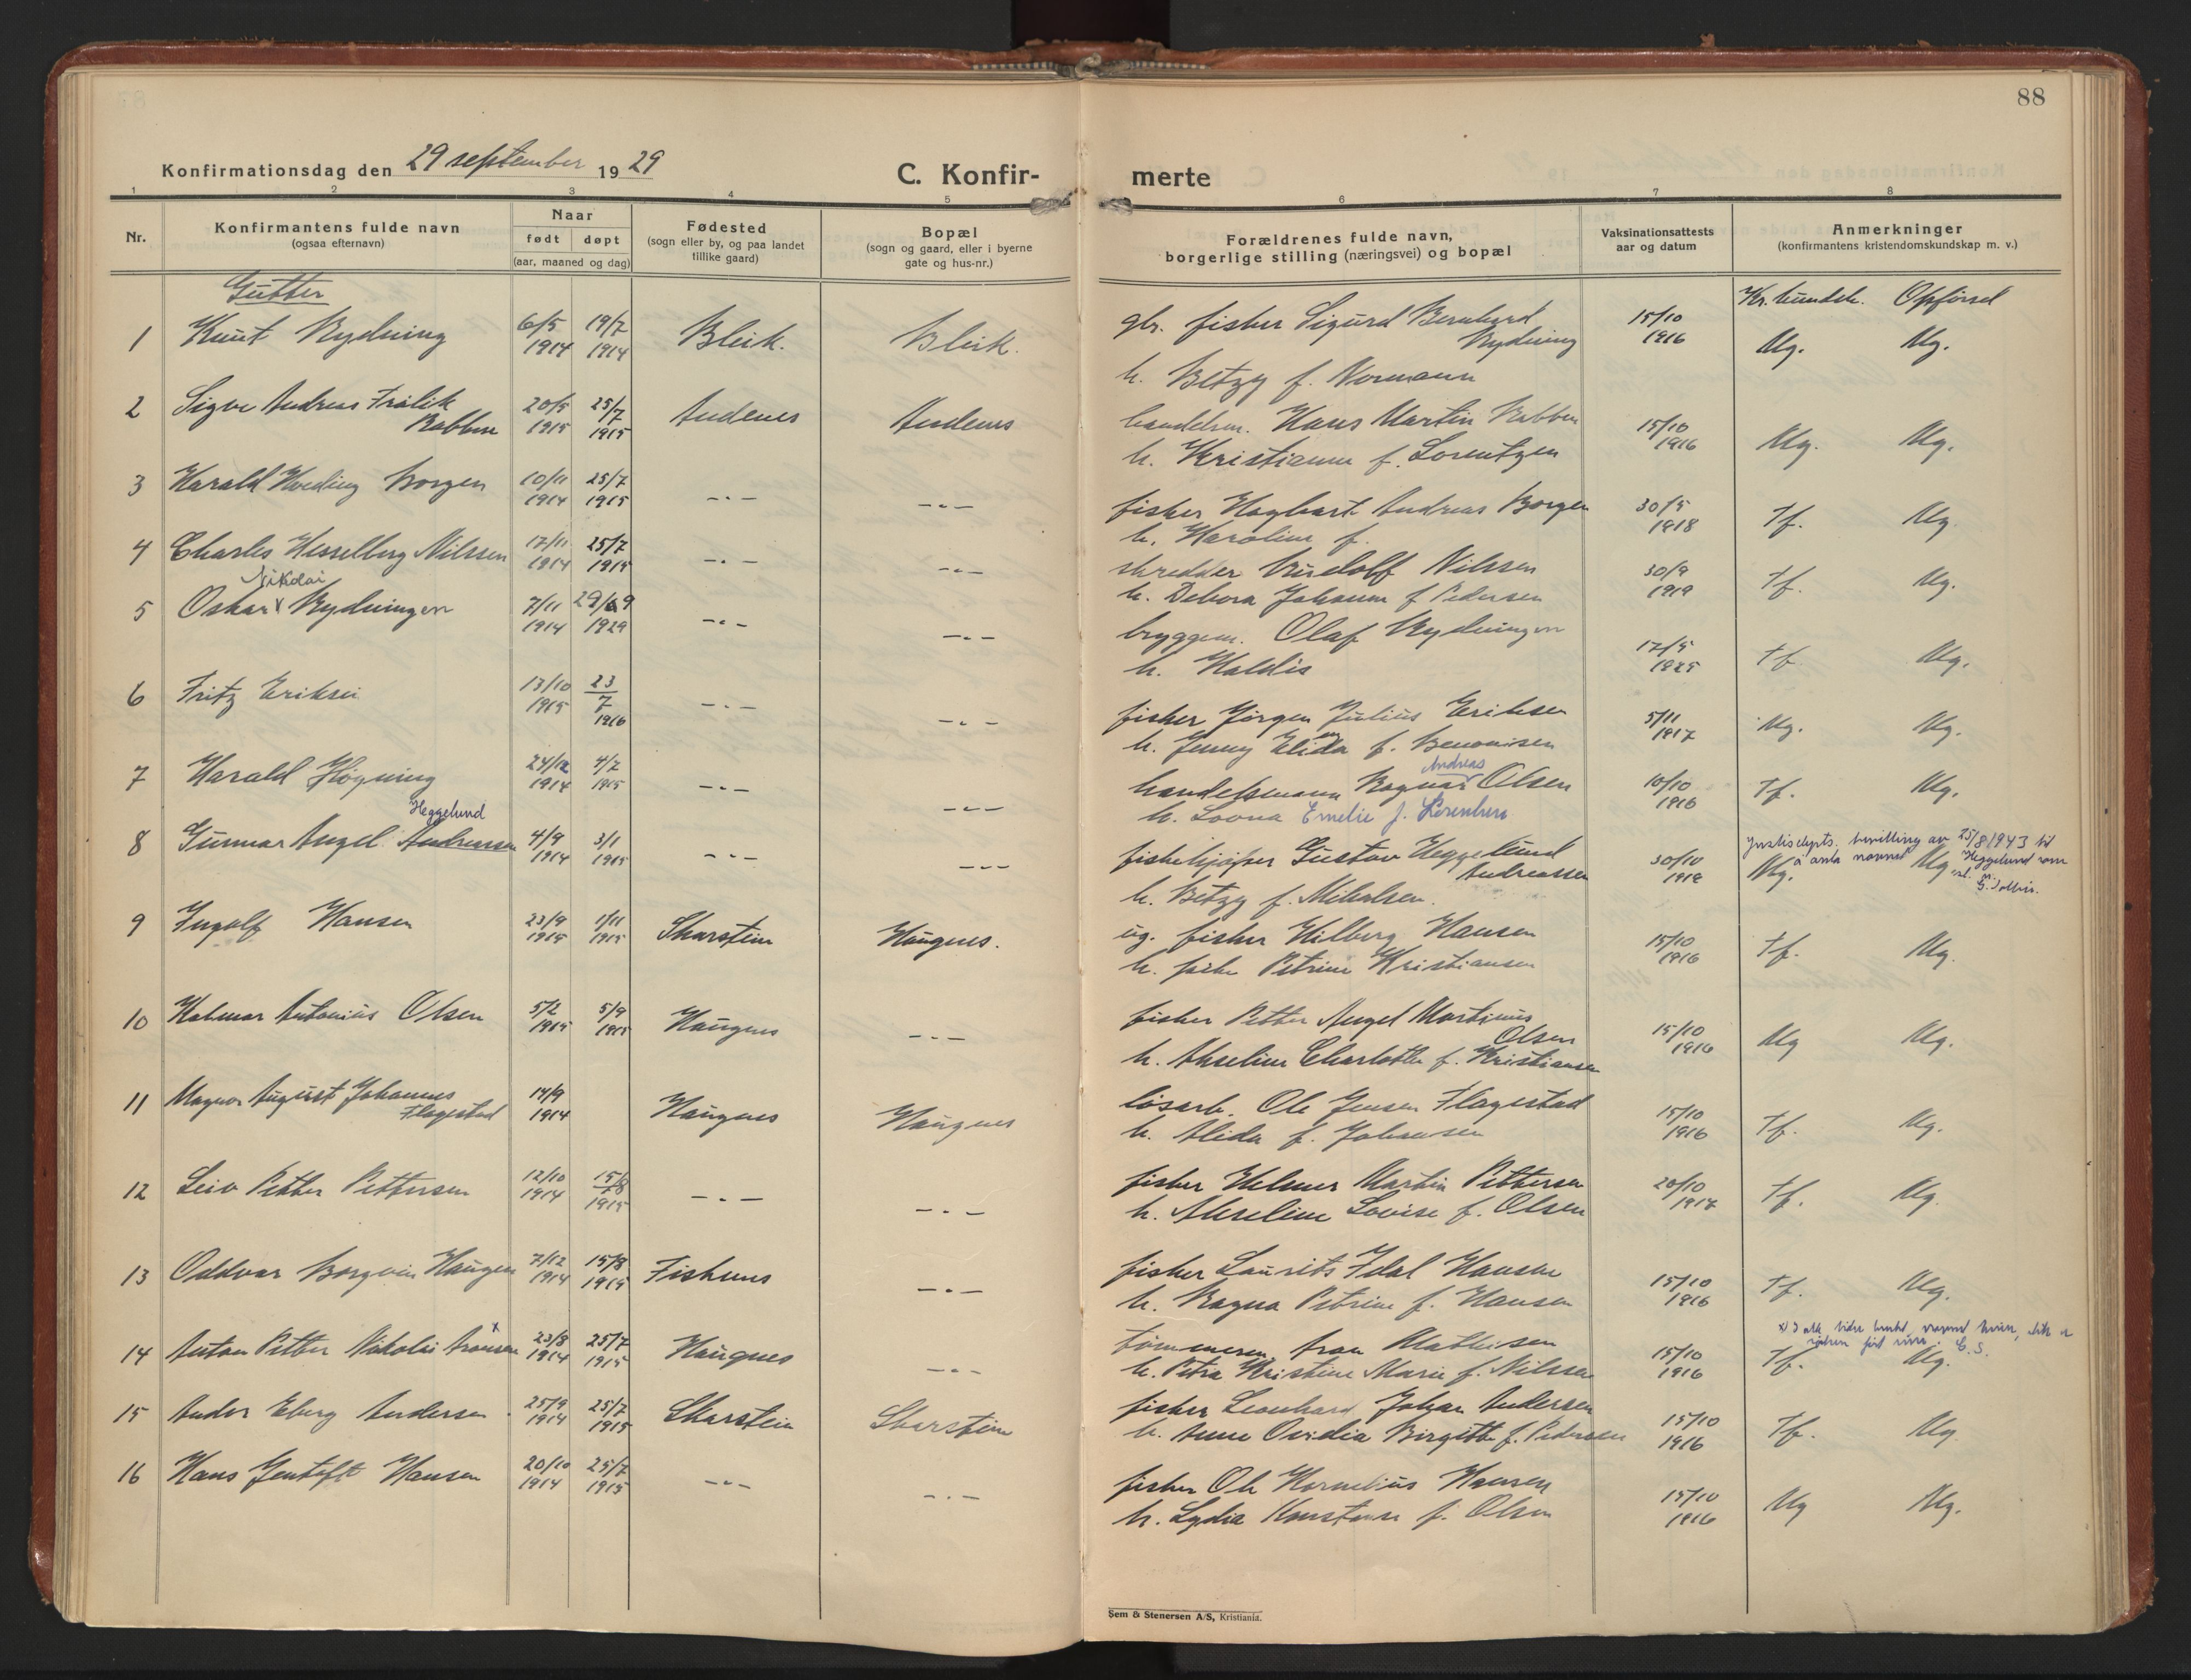 88
Konfirmationsdag den 29 september 1929
C. Konfir-
merte
1 2 3 4 5 6 7 8
Nr.
Konfirmantens fulde navn
(ogsaa efternavn)
Naar
født døpt
(aar, maaned og dag)
Fødested
(sogn eller by, og paa landet
tillike gaard)
Bopæl
(sogn og gaard, eller i byerne
gate og hus-nr.)
Forældrenes fulde navn,
borgerlige stilling (næringsvei) og bopæl
Vaksinationsattests
aar og datum
Anmerkninger
(konfirmantens kristendomskundskap m. v.)
Gutter
Kr. kundsk. Opførsel
1 Knut Nydning 6/5 1914 19/7 1914 Bleik. Bleik.
gbr. fisker Sigurd Bernhard
Nydning
h. Betzy f. Normann
15/10 1916 Mg. Mg.
2 Sigve Andreas
Robben 20/5 1915 25/7 1915 Andenes Andenes
handelsm. Hans Martin Robben
h. Kristianne f. Lorentzen
15/10 1916 Mg. Mg.
3 Harald Borgen 10/11 1914 25/7 1915 -"- -"-
fisker Hagbart Andreas Borgen
h. Karoline f.
30/5 1918 Tf. Mg.
4 Charles Hesselberg Nilssen 17/11 1914 25/7 1915 -"- -"-
skredder Nilssen
h. Debora Johanne f. Pedersen
30/9 1919 Tf. Mg.
Nikolai
5 Oskar x Nydningen 7/11 1914 29/9 1929 -"- -"-
bryggem. Olaf Nydningen
h. Haldis
17/5 1925 Tf. Mg.
6 Fritz Eriksen 13/10 1915 23/7 1916 -"- -"-
fisker Jørgen Julius Eriksen
h. Jenny Elida f. Benonisen
5/11 1917 Mg. Mg.
7 Harald Høgning 24/12 1914 4/7 1915 -"- -"-
Andreas
handelsmann Ragnar Olsen
h. Lovna Emelie f.
10/10 1916 Tf. Mg.
Heggelund
8 Gunnar Angel Andreassen 4/9 1914 3/1 1915 -"- -"-
fiskekjøper Gustav Heggelund
Andreassen
h. Betzy f. Mikalsen.
30/10 1918 Mg. Mg.
Justisdepts. bevilling av 25/8 1943 til
å anta navnet Heggelund som
9 Ingolf Hansen 23/9 1915 1/11 1915 Skarstein Haugnes.
ug. fisker Hilberg Hansen
h. Petrine Kristiansen
15/10 1916 Tf. Mg.
10 Halmar Antonius Olsen 5/2 1915 5/9 1915 Haugnes -"-
fisker Petter Angel Martinus
Olsen
h. Akseline Charlotte f. Kristiansen
15/10 1916 Mg Mg.
11 Magnor August Johannes
Flagestad 14/9 1914 Haugnes Haugnes
løsarb. Ole Jensen Flagestad
h. Alida f. Johansen
15/10 1916 Tf. Mg.
12 Leiv Petter Pettersen 12/10 1914 15/8 1915 -"- -"-
fisker Helmer Martin Pettersen
h. Akseline Lovise f. Olsen
20/10 1917 Tf. Mg.
13 Oddvar Borgvin Haugen 7/12 1914 15/8 1915 Fiskenes -"-
fisker Laurits Idal
h. Ragna Petrine f. Hansen
15/10 1916 Tf. Mg.
14 Anton Petter Nikolai x 23/8 1914 25/7 1915 Haugnes -"-
tømmerm. Mathisen
h. Petra Kristine Marie f. Nilssen
15/10 1916 Tf. Mg.
15 Andor Eberg Andersen 25/9 1914 25/7 1915 Skarstein Skarstein
fisker Leonhard Johan Andersen
h. Anne Ovidia Birgitte f. Pedersen
15/10 1916 Tf. Mg.
16 Hans Gentoft Hansen 20/10 1914 25/7 1915 -"- -"-
fisker Ole Kornelius Hansen
h. Lydia Konstanse f. Olsen
15/10 1916 Mg Mg.
Sem & Stenersen A/S, Kristiania.